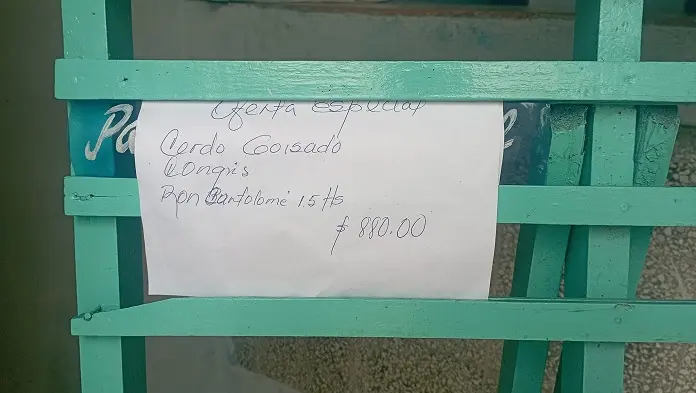 Oferta especial
Cerdo Goisado
Congris
Ron Bartolomé 1.5 lts
$ 880.00
Pa